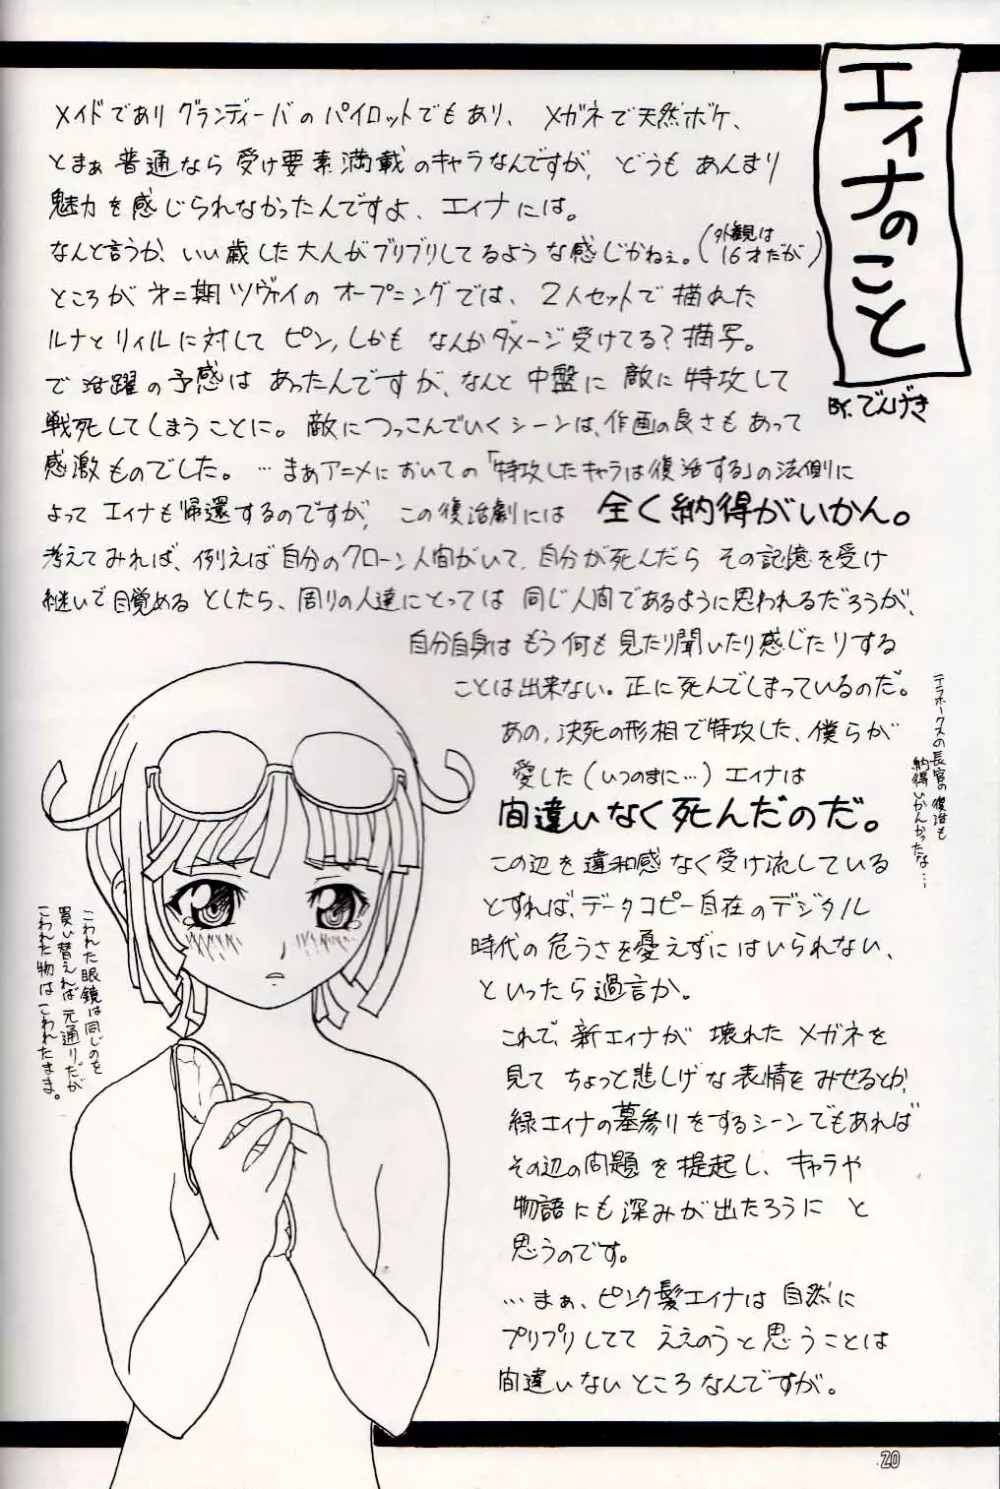 エィナのこと
BY.でんげき
メイドであり グランディーバの パイロットでもあり、 メガネで天然ボケ、
とまぁ 普通なら 受け要素満載のキャラなんですが、 どうも あんまり
魅力を感じられなかったんですよ、エィナには。
なんと言うか、いい歳した大人がブリブリしてるような感じかねぇ。(外観は16才だが)
ところが 才二期 ツヴァイの オープニングでは、 2人セットで 描れた
ルナと リィルに対して ピン,しかも なんか ダメージ受けてる?描写。
で 活躍の予感は あったんですが、なんと 中盤に 敵に 特攻して
戦死してしまうことに。敵につっこんでいくシーンは、作画の良さも あって
感激ものでした。…まぁアニメにおいての「特攻したキャラは復活する」の法則に
よって エィナも帰還するのですが、 この復活劇には 全く納得がいかん。
考えてみれば、例えば自分のクローン人間がいて、自分が死んだら その記憶を受け
継いで目覚める としたら、周りの人達にとっては 同じ人間であるように思われるだろうが、
自分自身は もう 何も 見たり聞いたり感じたりする
ことは出来ない。正に死んでしまっているのだ。
あの,決死の形相で特攻した、僕らが
愛した(いつのまに…)エィナは
間違いなく死んだのだ。
この辺を 違和感 なく受け流している
とすれば、データコピー自在のデジタル
時代の 危うさを憂えずにはいられない、
といったら過言か。
これで、新エィナが 壊れた メガネを
見て ちょっと悲しげな表情をみせるとか、
緑エィナの墓参りをするシーンでもあれば
その辺の問題を提起し、キャラや
物語にも深みが出たろうに と
思うのです。
…まぁ、ピンク髪エィナは 自然に
プリプリしてて ええのうと思うことは
間違いないところなんですが。
テラホークスの長官の復活も
納得いかんかったな…
こわれた眼鏡は同じのを
買い替えれば元通り。だが
こわれた物はこわれたまま。
20